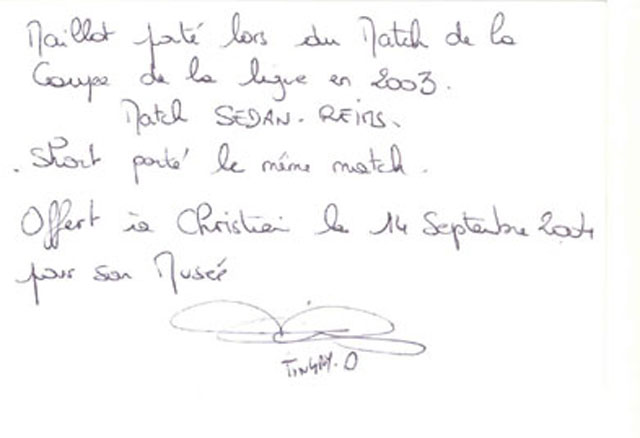 Maillot porté lors du Match de la
Coupe de la ligue en 2003.
Match SEDAN - REIMS.
. Short porté le même match.
Offert à Christian le 14 Septembre 2004
pour son Musée
TINGRY.O